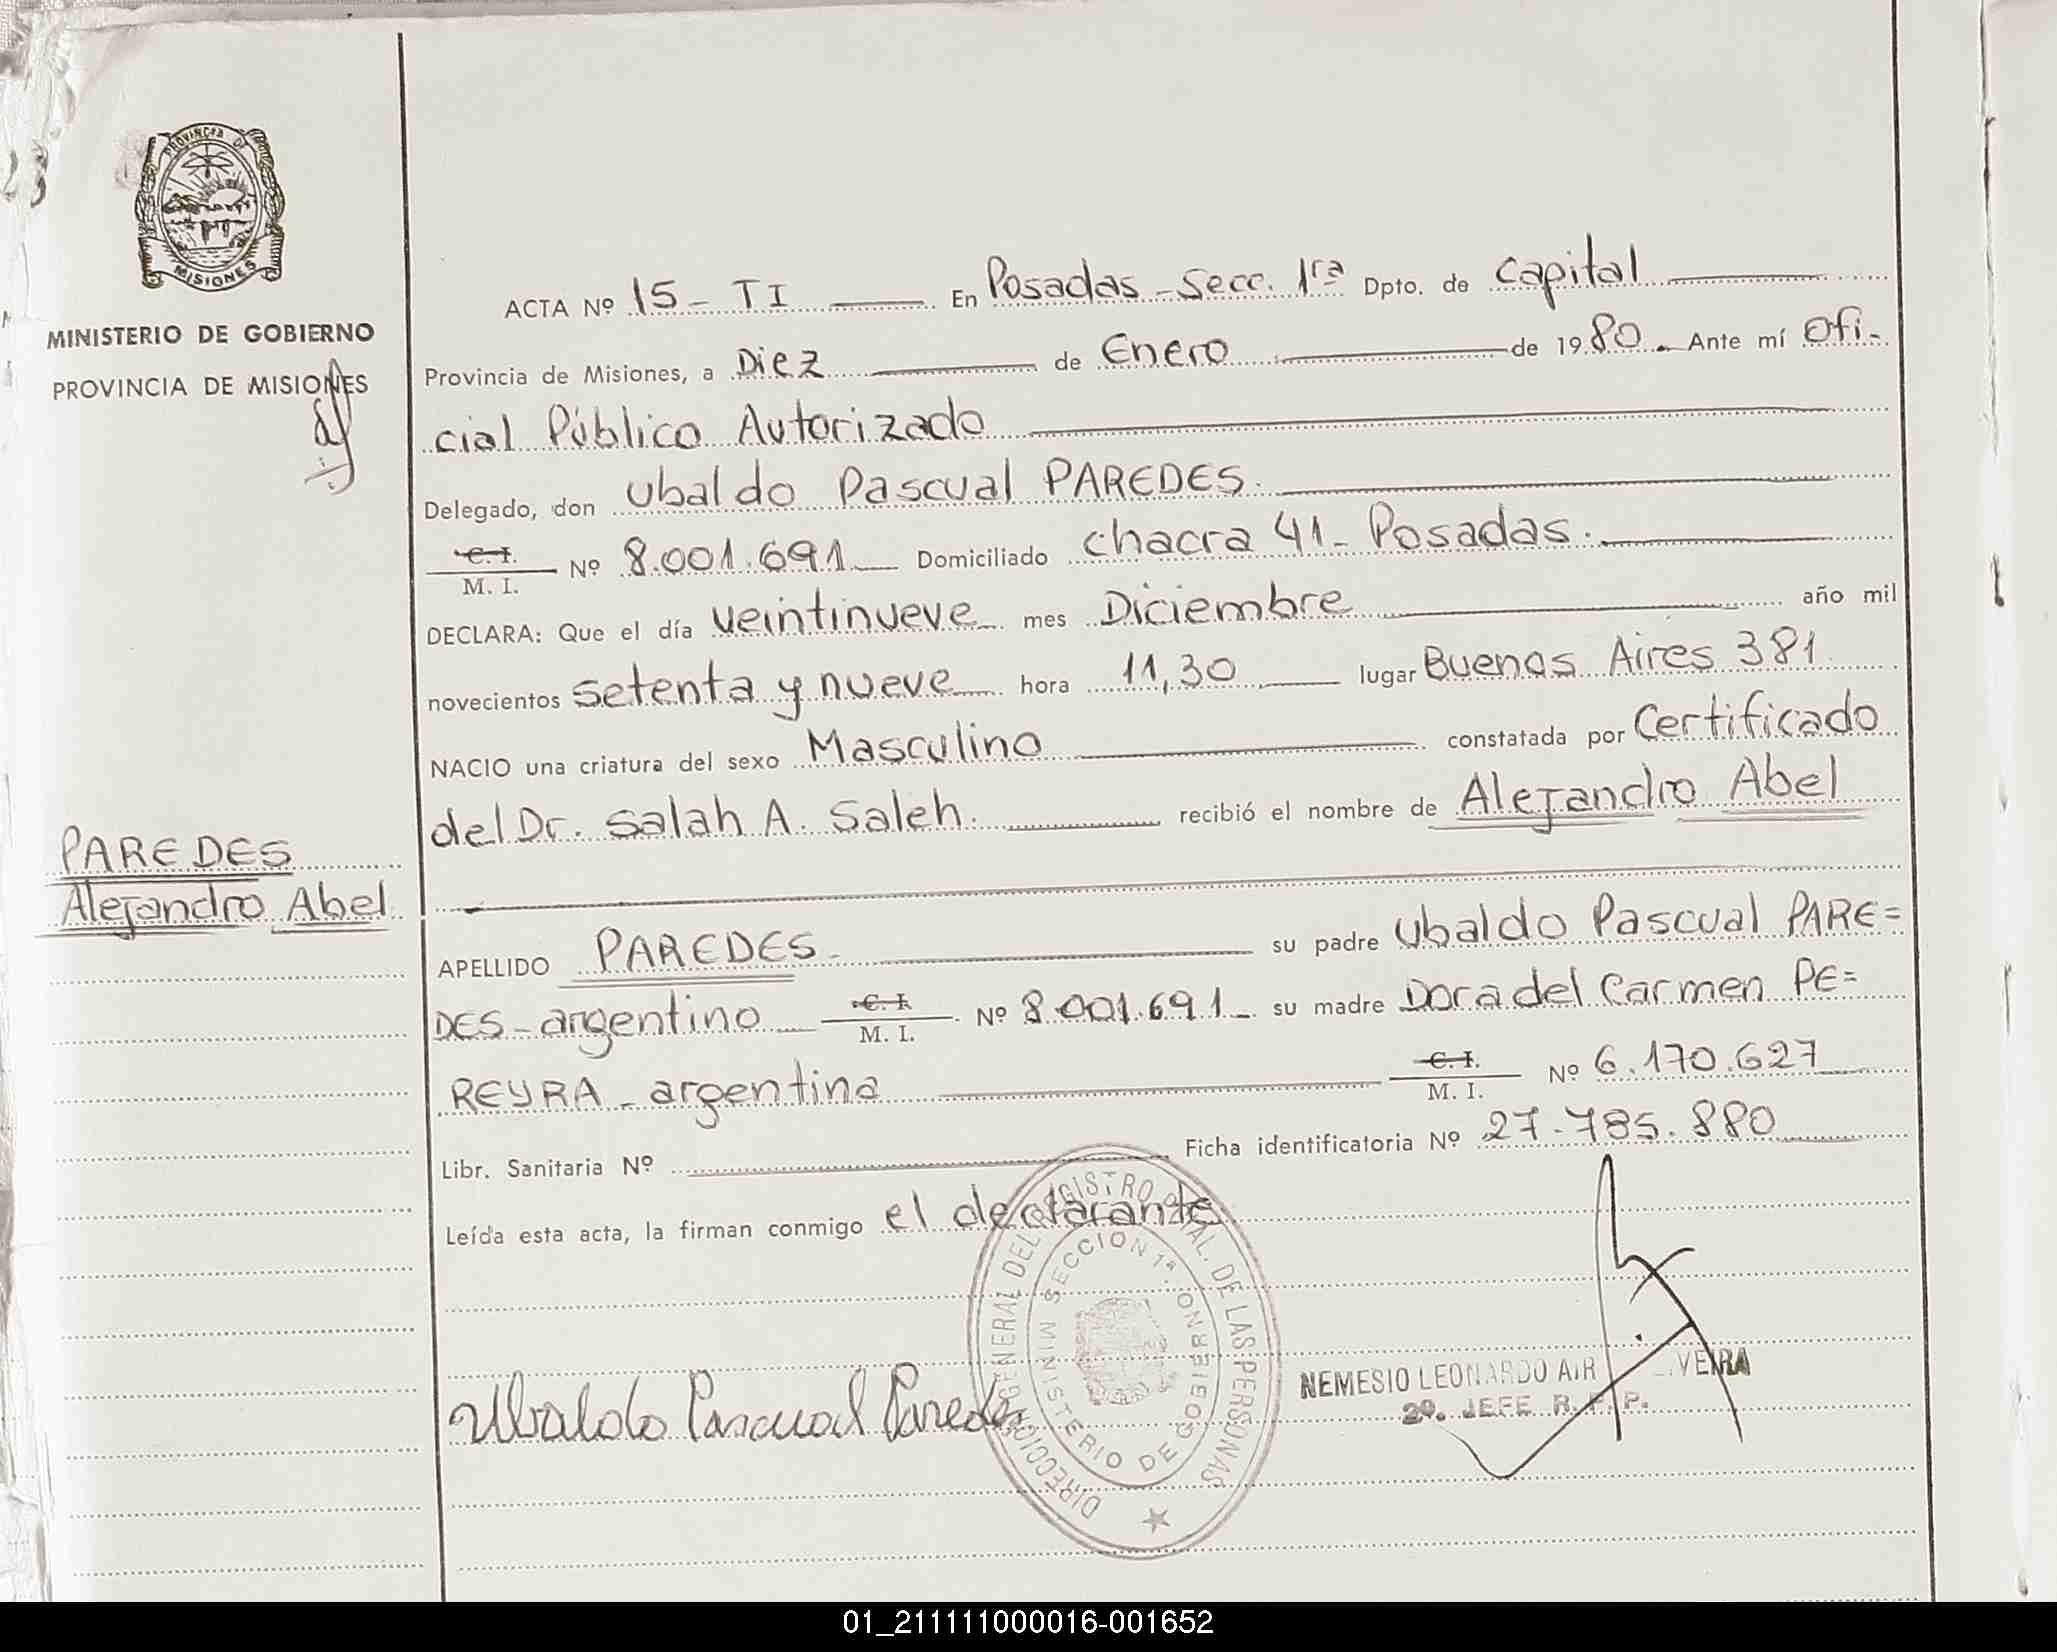 PROVINCIA DE
MISIONES
MINISTERIO DE GOBIERNO
PROVINCIA DE MISIONES
ACTA Nº 15 - TI En Posadas - Secc. 1ra Dpto. de Capital
Provincia de Misiones, a Diez de Enero de 1980. Ante mí Ofi-
cial Público Autorizado
Delegado, don Ubaldo Pascual PAREDES.
C. I.
M. I. Nº 8.001.691 Domiciliado Chacra 41 - Posadas.
DECLARA: Que el día Veintinueve mes Diciembre año mil
novecientos setenta y nueve hora 11,30 lugar Buenos Aires 381
NACIO una criatura del sexo Masculino constatada por Certificado
del Dr. Salah A. Saleh. recibió el nombre de Alejandro Abel
PAREDES
Alejandro Abel
APELLIDO PAREDES su padre Ubaldo Pascual PARE=
DES - argentino C. I. M. I. Nº 8.001.691 su madre Dora del Carmen PE=
REYRA - argentina C. I. M. I. Nº 6.170.627
Libr. Sanitaria Nº Ficha identificatoria Nº 27.785.880
Leída esta acta, la firman conmigo el declarante
DIRECCION GENERAL DEL REGISTRO PCIAL. DE LAS PERSONAS
SECCION 1ª
MINISTERIO DE GOBIERNO
Ubaldo Pascual Paredes
NEMESIO LEONARDO
2º. JEFE R. P. P.
01_211111000016-001652